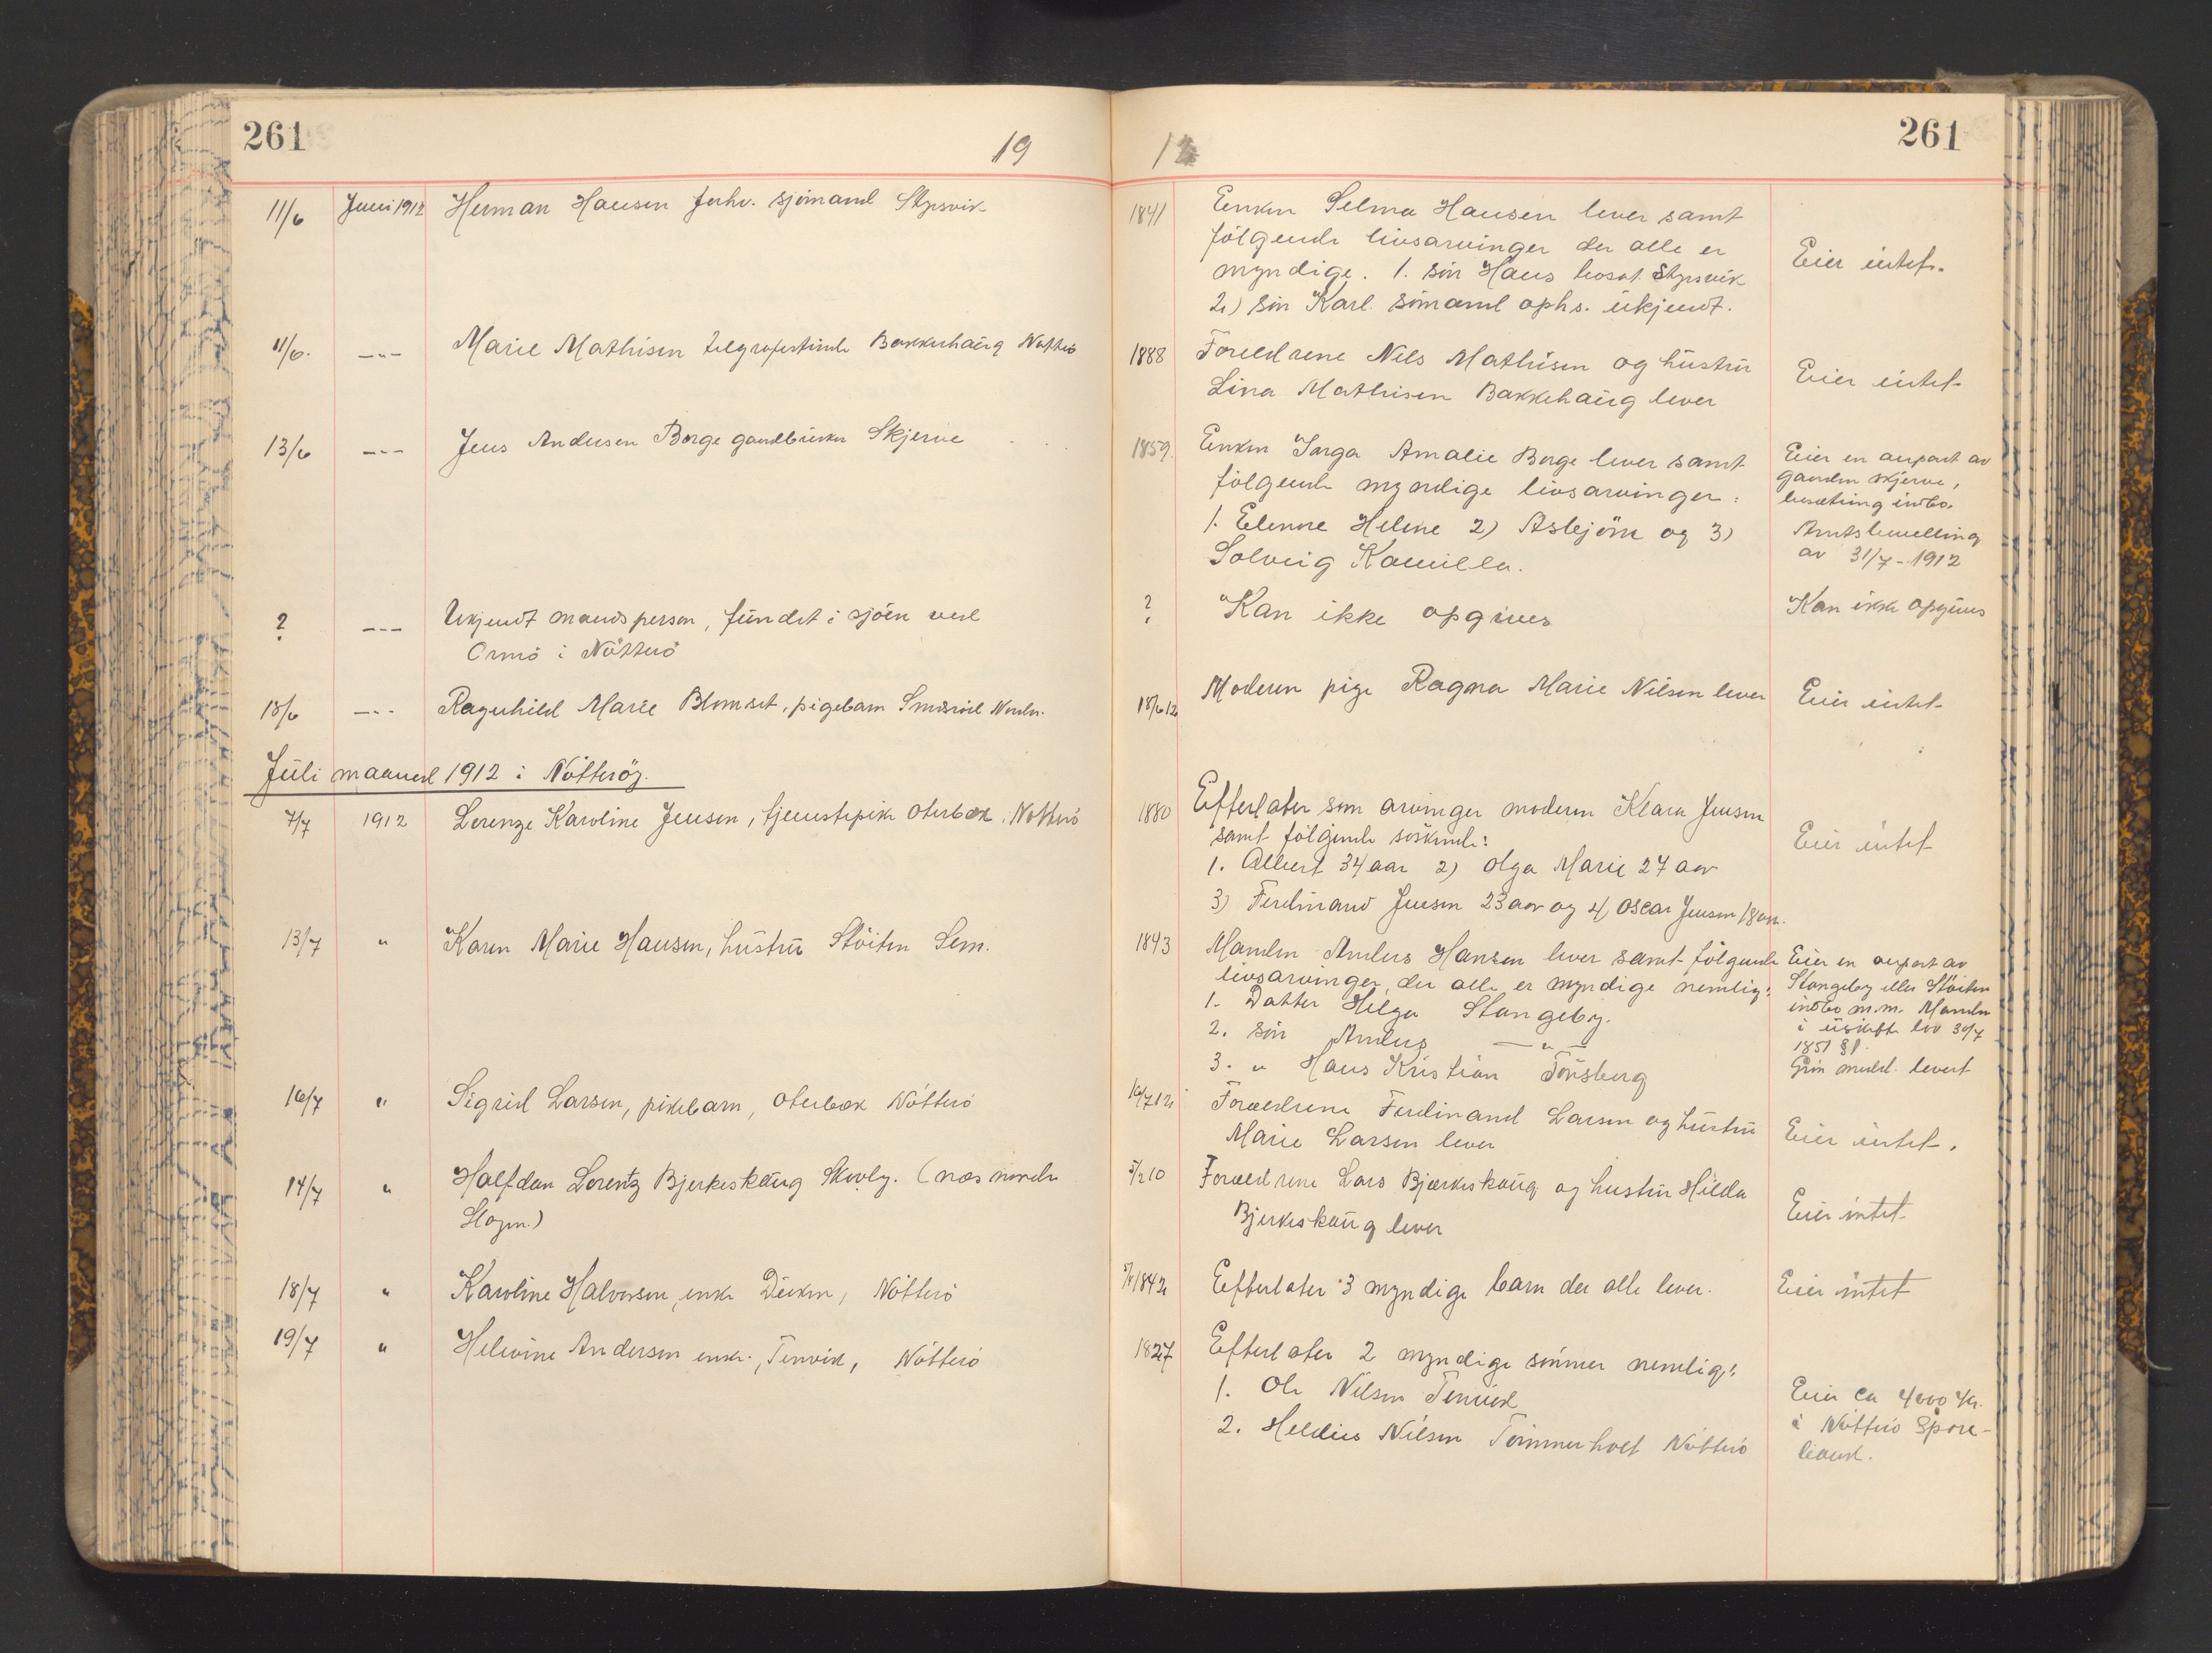 261
19
12
261
11/6 Juni 1912 Herman Hansen forhv. sjömand Skjærsvik
1841 Enken Selma Hansen lever samt
følgende livsarvinger der alle er
myndige. 1. sön Hans bosat
2) sön Karl sömand ophs. ukjendt.
Eier intet.
11/6. --- Marie Mathisen telegrafistinde Bakkehaug Nötterö
1888 Foreldrene Nils Mathisen og hustru
Lina Mathisen Bakkehaug lever
Eier intet
13/6 --- Jens Andersen Borge gaardbruker Skjerve
1859. Enken Inga Amalie Borge lever samt
følgende myndige livsarvinger:
1. Elenore Helene 2) Asbjörn og 3)
Solveig Kamilla.
Eier en anpart av
gaarden Skjerve,
besætning indbo.
Amtsbevilling
av 31/7-1912
? --- Ukjendt mandsperson, fundet i sjöen ved
Ormö i Nötterö
? Kan ikke opgives
Kan ikke opgives
18/6 --- Ragnhild Marie Blomset, pigebarn Smidsröd Nötterö.
18/6 12 Moderen pige Ragna Marie Nilsen lever
Eier intet
Juli maaned 1912 i Nötteröy.
7/7 1912 Lorenze Karoline Jensen, tjenestepike Oterbæk, Nötterö
1880 Efterlater som arvinger moderen Klara Jensen
samt følgende söskende:
1. Albert 34 aar 2) Olga Marie 27 aar
3) Ferdinand Jensen 23 aar og 4) Oscar Jensen 18 aar.
Eier intet
13/7 " Karen Marie Hansen, hustru Stöiten Sem.
1843 Manden Anders Hansen lever samt følgende
livsarvinger, der alle er myndige nemlig:
1. Datter Helga Stangeby.
2. sön Anders — " —
3. " Hans Kristian Tönsberg
Eier en anpart av
Stangeby eller Stöiten
indbo m.m. Manden
i uskifte lov 30/7
1851 § 1.
levert
16/7 " Sigrid Larsen, pikebarn, Oterbæk Nötterö
16/7 12 Foreldrene Ferdinand Larsen og hustru
Marie Larsen lever
Eier intet.
14/7 " Halfdan Lorentz Bjerkeskaug Skovly. (næs nordre
Slagen.)
5/2 10 Foreldrene Lars Bjerkeskaug og hustru Hilda
Bjerkeskaug lever
Eier intet
18/7 " Karoline Halvorsen, enke Duken, Nötterö
5/4 1842 Efterlater 3 myndige barn der alle lever.
Eier intet
19/7 " Helevine Andersen enke, Tenvik, Nötterö
1827 Efterlater 2 myndige sönner nemlig:
1. Ole Nilsen Tenvik
2. Heldius Nilsen Tömmerholt Nötterö
Eier ca 4000 kr.
i Nötterö Spare-
bank.